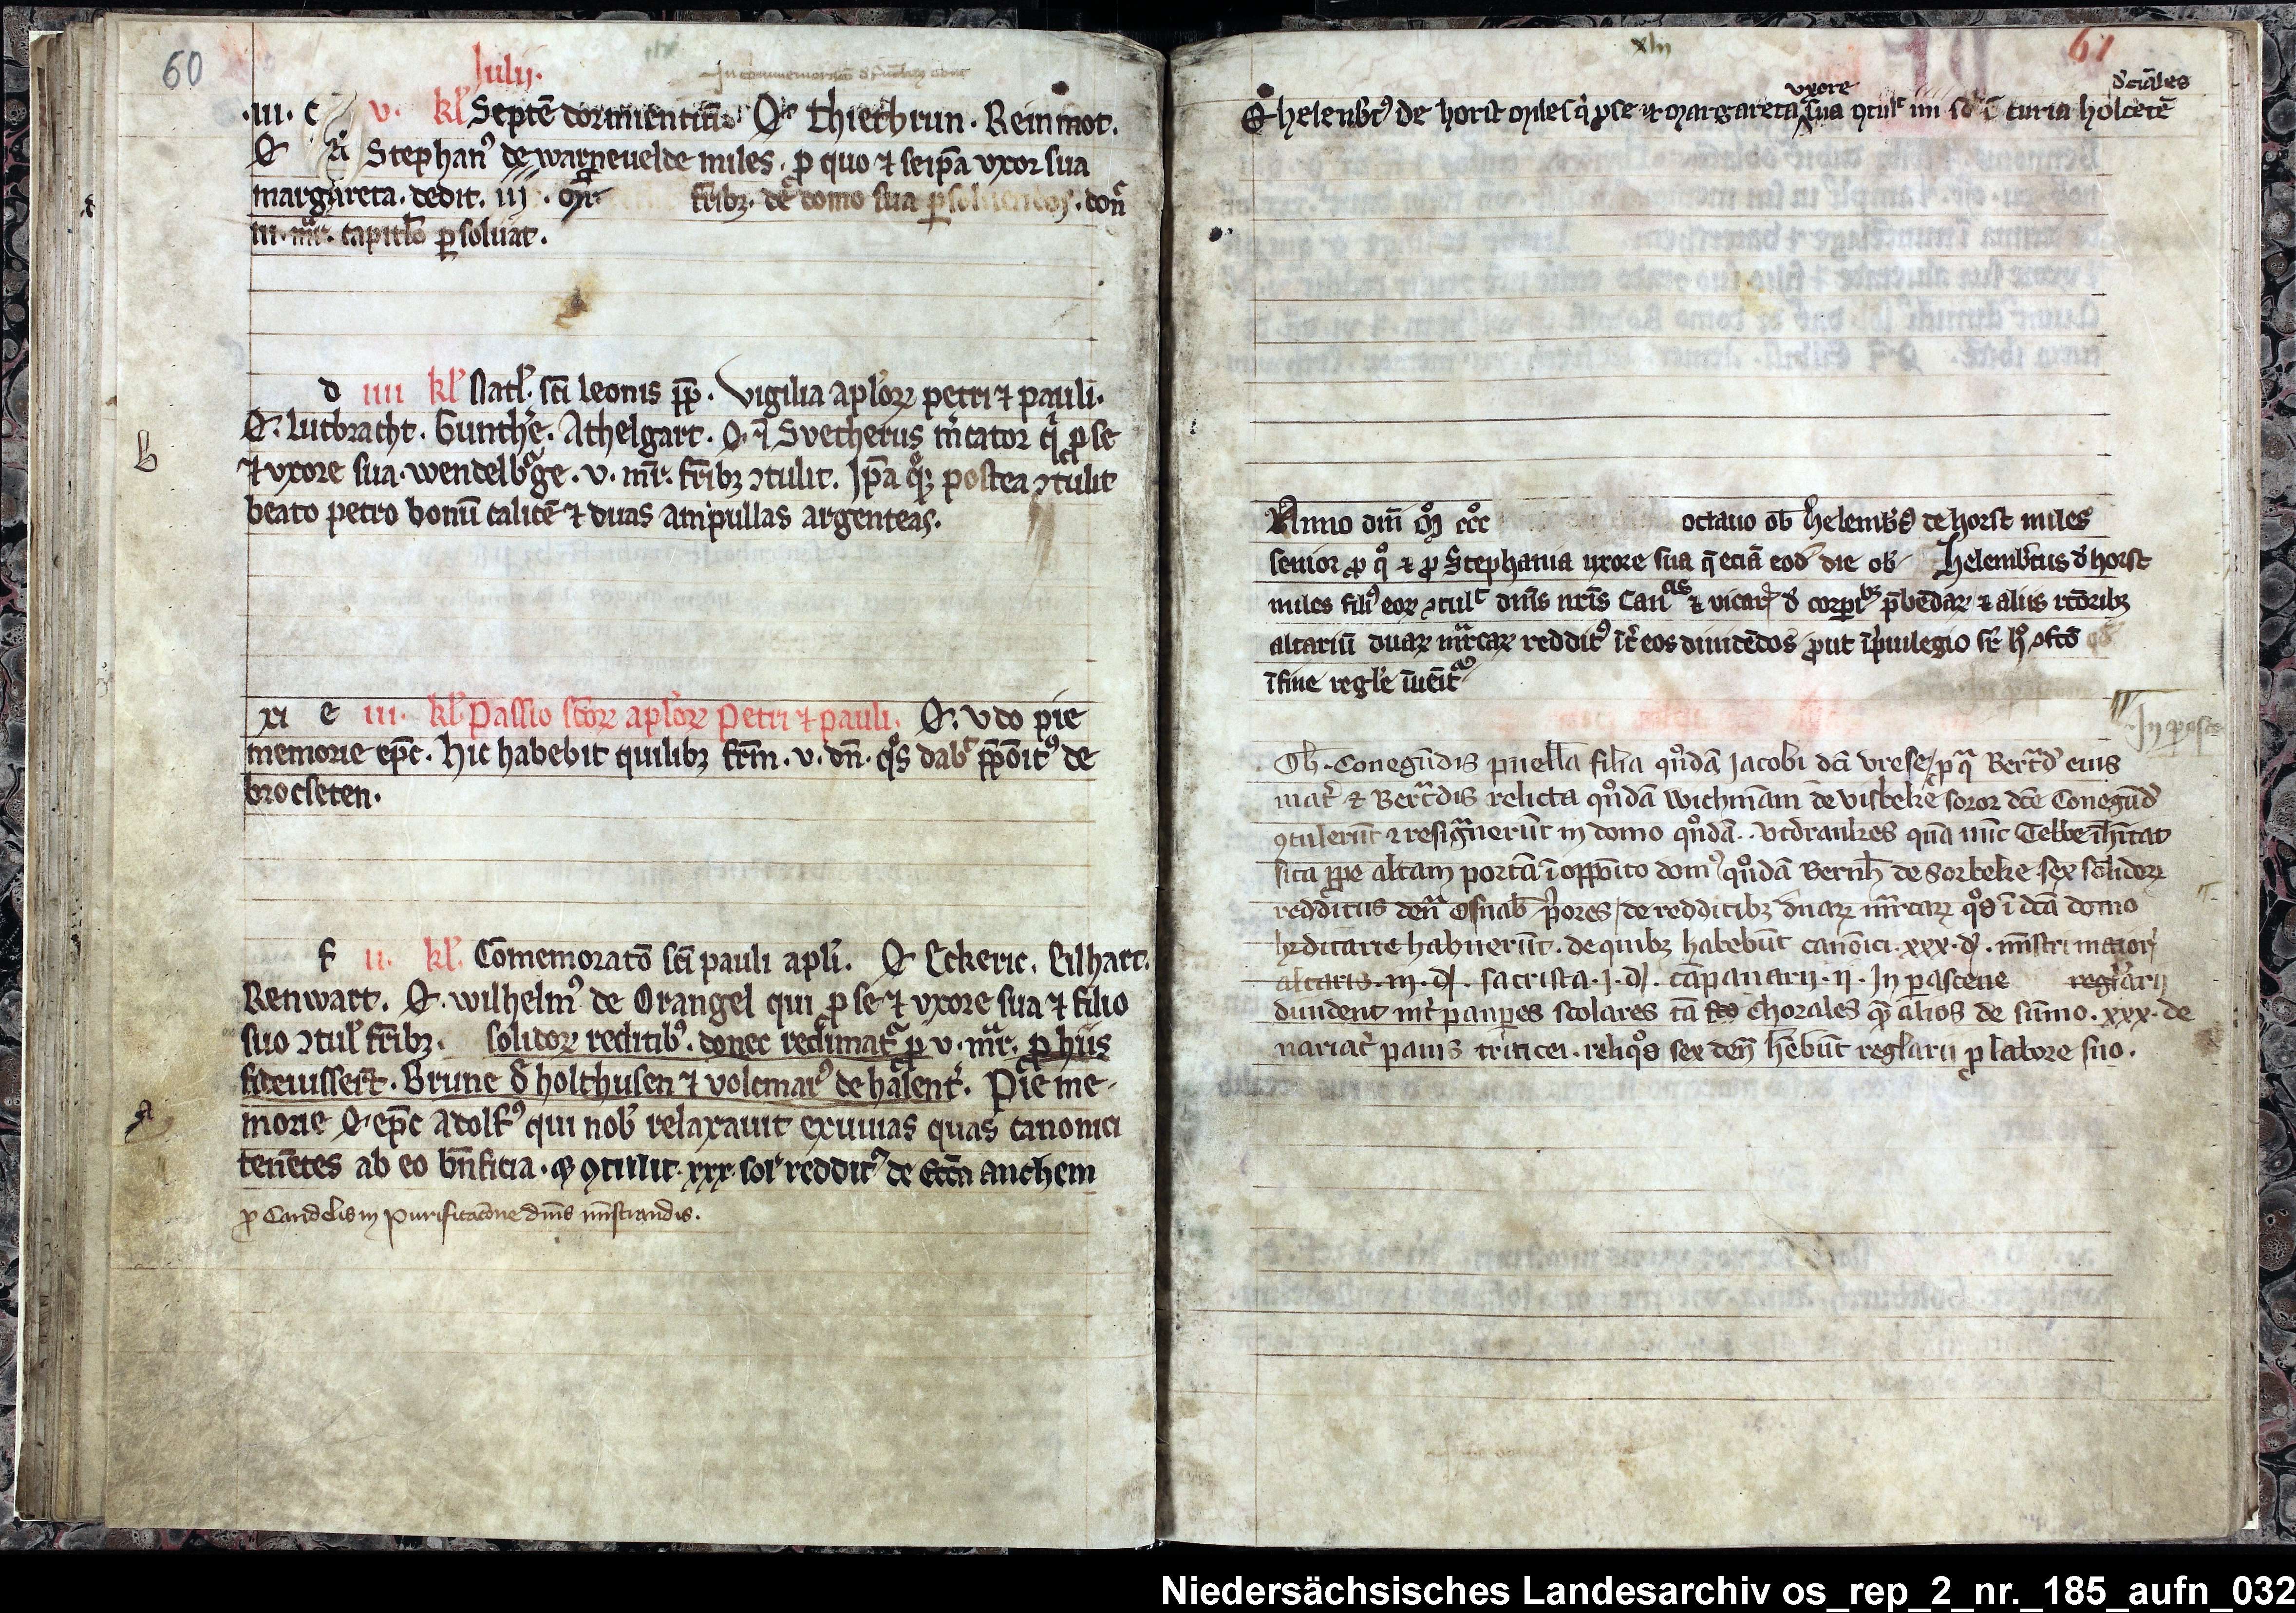 60
Julii.
.iii. c v. kl' Septē dormientiū. O' Thietbrun. Reinmot.
O Stephan' de warneuelde miles. p quo ⁊ seip̄a vxor sua
margareta. dedit. iij. mr. fr̄ibꝫ. de domo sua psoluendos. don̄
iii. mr. capitl'o psoluat.
d iiii kl' Natl'. sc̄i leonis pp̄. Vigilia apl'oꝝ petri ⁊ pauli.
O. Lutbracht. Gunth'e. Athelgart. O. Svetherus m'cator q' p se
⁊ vxore sua. wendelb'ge. v. mr̄. fr̄ibꝫ ꝯtulit. Jp̄a q°ꝫ postea ꝯtulit
b
beato petro bonū calicē ⁊ duas ampullas argenteas.
xi e iii. kl' Passio sc̄oꝝ apl'oꝝ Petri ⁊ pauli. O. vdo pie
memorie ep̄c. Hic habebit quilibꝫ fr̄m. v. dn̄. q°s dab' p̄pōit' de
brocseten.
f ii. kl'. Cōmemoratō sc̄i pauli apl'i. O Eckeric. Eilhart.
Renwart. O. wilhelm' de Orangel qui p se ⁊ vxore sua ⁊ filio
suo ꝯtul' fr̄ibꝫ. solidoꝝ reditib'. donec redimat' p v. mr̄. p hiis
fideiusser̄t. Brune d' holthusen ⁊ volcmar' de halent'. Pie me-
morie O ep̄c Adolf' qui nob' relaxauit exuuias quas canonici
tenētes ab eo bn̄ficia. ꝯtulit. xxx. sol' reddit' de ecc̄a anchem
p Candelis in Purificacōne dn̄is mīstrandis.
xlii
61
vxore
d'ciāles
O helenb't' de horst miles q' p se ⁊ margareta sua ꝯtul' iiii sol' ī curia holcetē
Anno dm̄ m° ccc° octauo ob' helemb't' de horst miles
senior p q° ⁊ p Stephania vxore sua q̄ eciā eod' die ob' Helemb'tus d' horst
miles fili' eoꝝ ꝯtul' dn̄is nr̄is Can'cis ⁊ vicar' d' corp'ibꝫ p̄bēdaꝝ ⁊ aliis rcōribꝫ
altariū duaꝝ mr̄caꝝ reddit' īt' eos diuidēdos put ī p'uilegio sr̄ h° ꝯfcō
ī fine regl'e īuēit'
In pasce
Ob'. Conegūdis puella filia q°ndā Jacobi dc̄i vrese p q' Bert'd' eius
mat' ⁊ Bert'dis relicta q°ndā Wichmāni de visbeke soror dc̄e Conegūd'
ꝯtulerūt ⁊ resignauerūt in domo q°ndā. vtdrankes quā nūc Tebbe īh'itat
sita ppe altam portā ī opp̄oito dom' q°ndā Bernh' de Sorbeke sex solidoꝝ
redditus den' Osnab' p'ores de redditibꝫ duaꝝ mr̄caꝝ q°s ī dc̄a domo
h'ditarie habuerūt. de quibꝫ habebūt canōici. xxx. d'. mīstri maior'
altaris. iij. d'. sacrista. j. d'. cāpanarij. ij. In pascene regl'arij
diuident int' paup̄es scolares tā chorales q' alios de sūmo. xxx. de
nariat' panis triticei. reliq°s sex den' h'ebūt regl'arii p labore suo.
Niedersächsisches Landesarchiv os_rep_2_nr._185_aufn_032